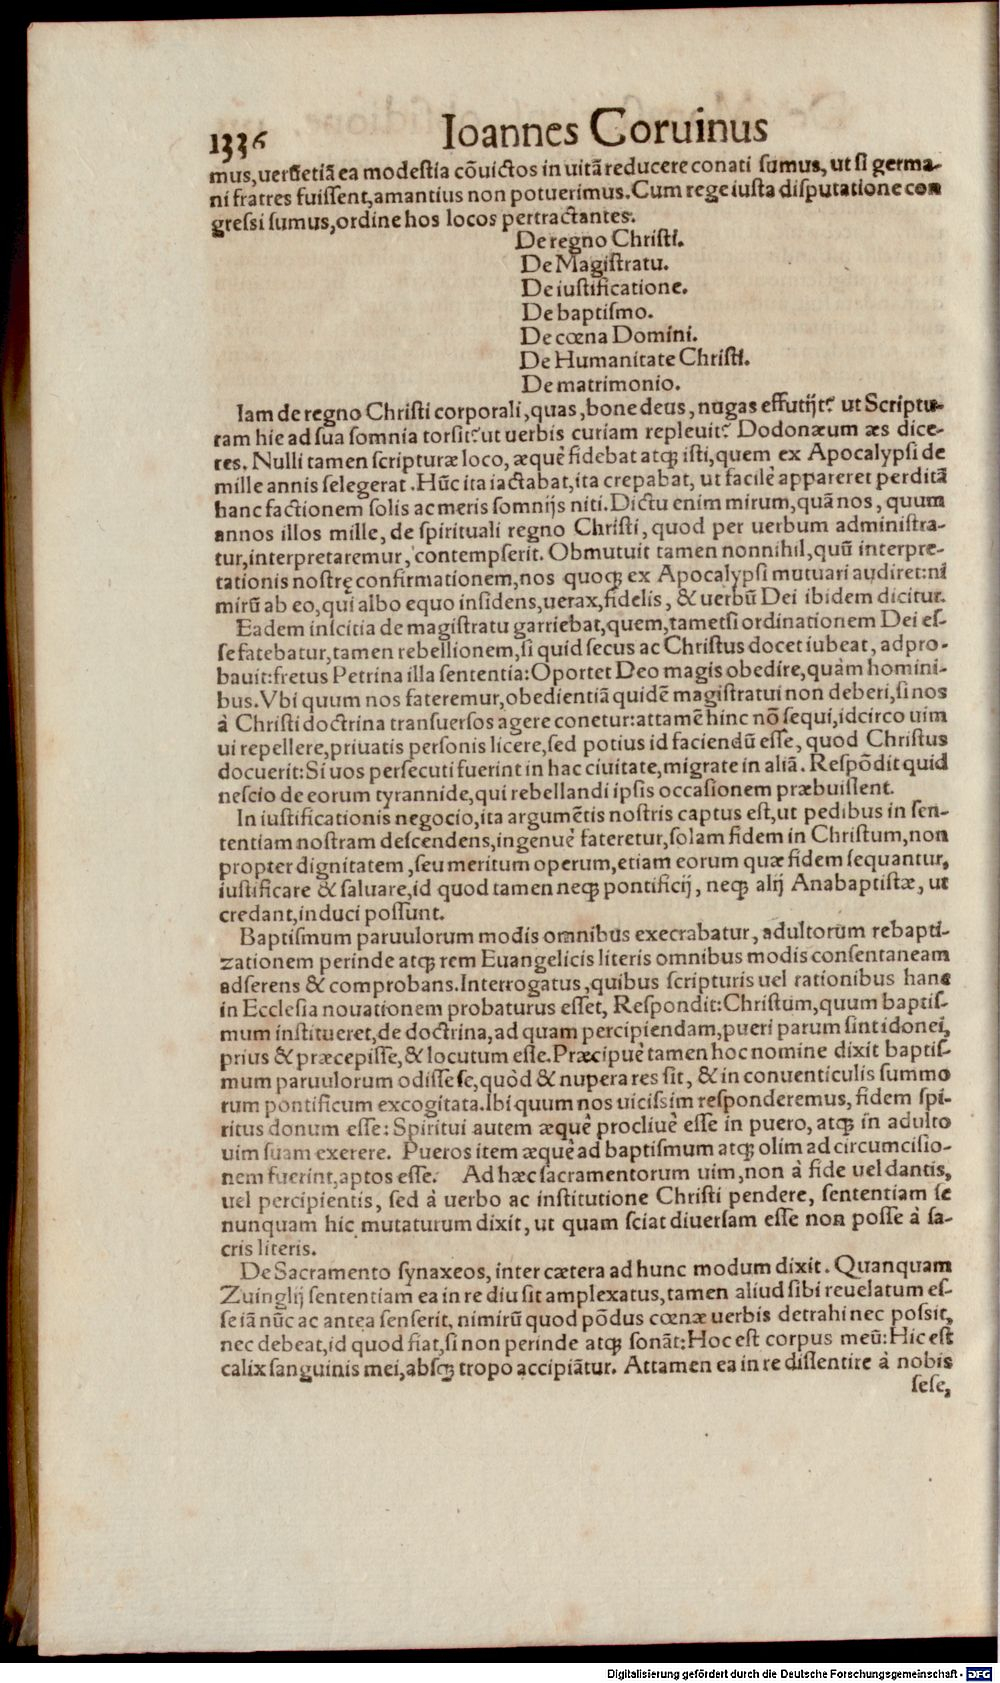 1336 Ioannes Coruinus
mus, uerũ etiã ea modestia cõuictos in uitã reducere conati sumus, ut si germa-
ni fratres fuissent, amantius non potuerimus. Cum rege iusta disputatione con
gressi sumus, ordine hos locos pertractantes.
De regno Christi.
De Magistratu.
De iustificatione.
De baptismo.
De cœna Domini.
De Humanitate Christi.
De matrimonio.
Iam de regno Christi corporali, quas, bone deus, nugas effutijt? ut Scriptu-
ram hic ad sua somnia torsit? ut uerbis curiam repleuit? Dodonæum æs dice-
res. Nulli tamen scripturæ loco, æquè fidebat atq; isti, quem ex Apocalypsi de
mille annis selegerat. Hũc ita iactabat, ita crepabat, ut facilè appareret perditã
hanc factionem solis ac meris somnijs niti. Dictu enim mirum, quã nos, quum
annos illos mille, de spirituali regno Christi, quod per uerbum administra-
tur, interpretaremur, contempserit. Obmutuit tamen nonnihil, quũ interpre-
tationis nostrę confirmationem, nos quoq; ex Apocalypsi mutuari audiret: ni
mirũ ab eo, qui albo equo insidens, uerax, fidelis, & uerbũ Dei ibidem dicitur.
Eadem inscitia de magistratu garriebat, quem, tametsi ordinationem Dei es-
se fatebatur, tamen rebellionem, si quid secus ac Christus docet iubeat, adpro-
bauit: fretus Petrina illa sententia: Oportet Deo magis obedire, quàm homini-
bus. Vbi quum nos fateremur, obedientiã quidẽ magistratui non deberi, si nos
à Christi doctrina transuersos agere conetur: attamẽ hinc nõ sequi, idcirco uim
ui repellere, priuatis personis licere, sed potius id faciendũ esse, quod Christus
docuerit: Si uos persecuti fuerint in hac ciuitate, migrate in aliã. Respõdit quid
nescio de eorum tyrannide, qui rebellandi ipsis occasionem præbuissent.
In iustificationis negocio, ita argumẽtis nostris captus est, ut pedibus in sen-
tentiam nostram descendens, ingenuè fateretur, solam fidem in Christum, non
propter dignitatem, seu meritum operum, etiam eorum quæ fidem sequantur,
iustificare & saluare, id quod tamen neq; pontificij, neq; alij Anabaptistæ, ut
credant, induci possunt.
Baptismum paruulorum modis omnibus execrabatur, adultorum rebapti-
zationem perinde atq; rem Euangelicis literis omnibus modis consentaneam
adserens & comprobans. Interrogatus, quibus scripturis uel rationibus hanc
in Ecclesia nouationem probaturus esset, Respondit: Christum, quum baptis-
mum institueret, de doctrina, ad quam percipiendam, pueri parum sint idonei,
prius & præcepisse, & locutum esse. Præcipuè tamen hoc nomine dixit baptis-
mum paruulorum odisse se, quòd & nupera res sit, & in conuenticulis summo
rum pontificum excogitata. Ibi quum nos uicissim responderemus, fidem spi-
ritus donum esse: Spiritui autem æquè procliuè esse in puero, atq; in adulto
uim suam exerere. Pueros item æquè ad baptismum atq; olim ad circumcisio-
nem fuerint, aptos esse. Ad hæc sacramentorum uim, non à fide uel dantis,
uel percipientis, sed à uerbo ac institutione Christi pendere, sententiam se
nunquam hic mutaturum dixit, ut quam sciat diuersam esse non posse à sa-
cris literis.
De Sacramento synaxeos, inter cætera ad hunc modum dixit. Quanquam
Zuinglij sententiam ea in re diu sit amplexatus, tamen aliud sibi reuelatum es-
se iã nũc ac antea senserit, nimirũ quod põdus cœnæ uerbis detrahi nec possit,
nec debeat, id quod fiat, si non perinde atq; sonãt: Hoc est corpus meũ: Hic est
calix sanguinis mei, absq; tropo accipiãtur. Attamen ea in re dissentire à nobis
sese,
Digitalisierung gefördert durch die Deutsche Forschungsgemeinschaft - DFG